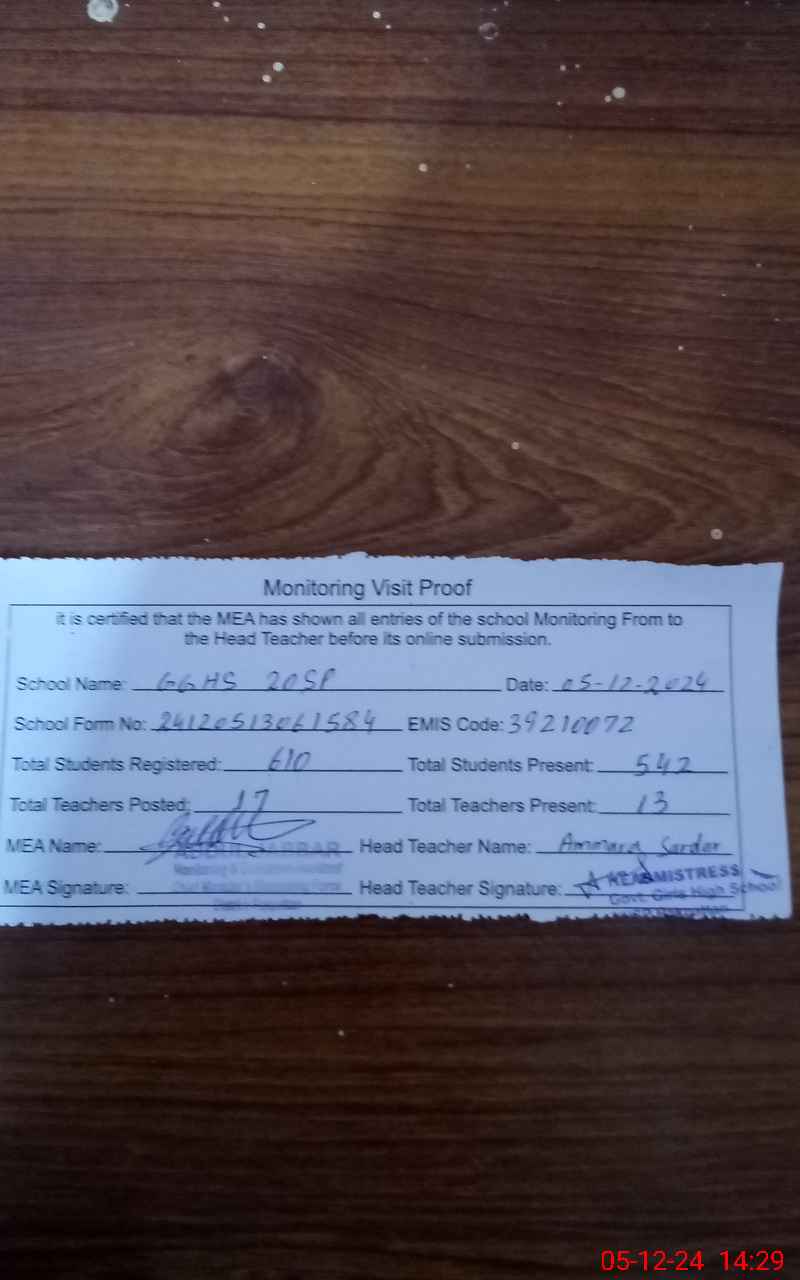 Monitoring Visit Proof
it is certified that the MEA has shown all entries of the school Monitoring From to
the Head Teacher before its online submission.
School Name: GGHS 20SP Date: 05-12-2024
School Form No: 24120513061584 EMIS Code: 39210072
Total Students Registered: 610 Total Students Present: 542
Total Teachers Posted: 17 Total Teachers Present: 13
MEA Name: JABBAR Head Teacher Name: Ammara Sardar
MEA Signature: Head Teacher Signature: HEADMISTRESS
Govt. Girls High School
05-12-24 14:29